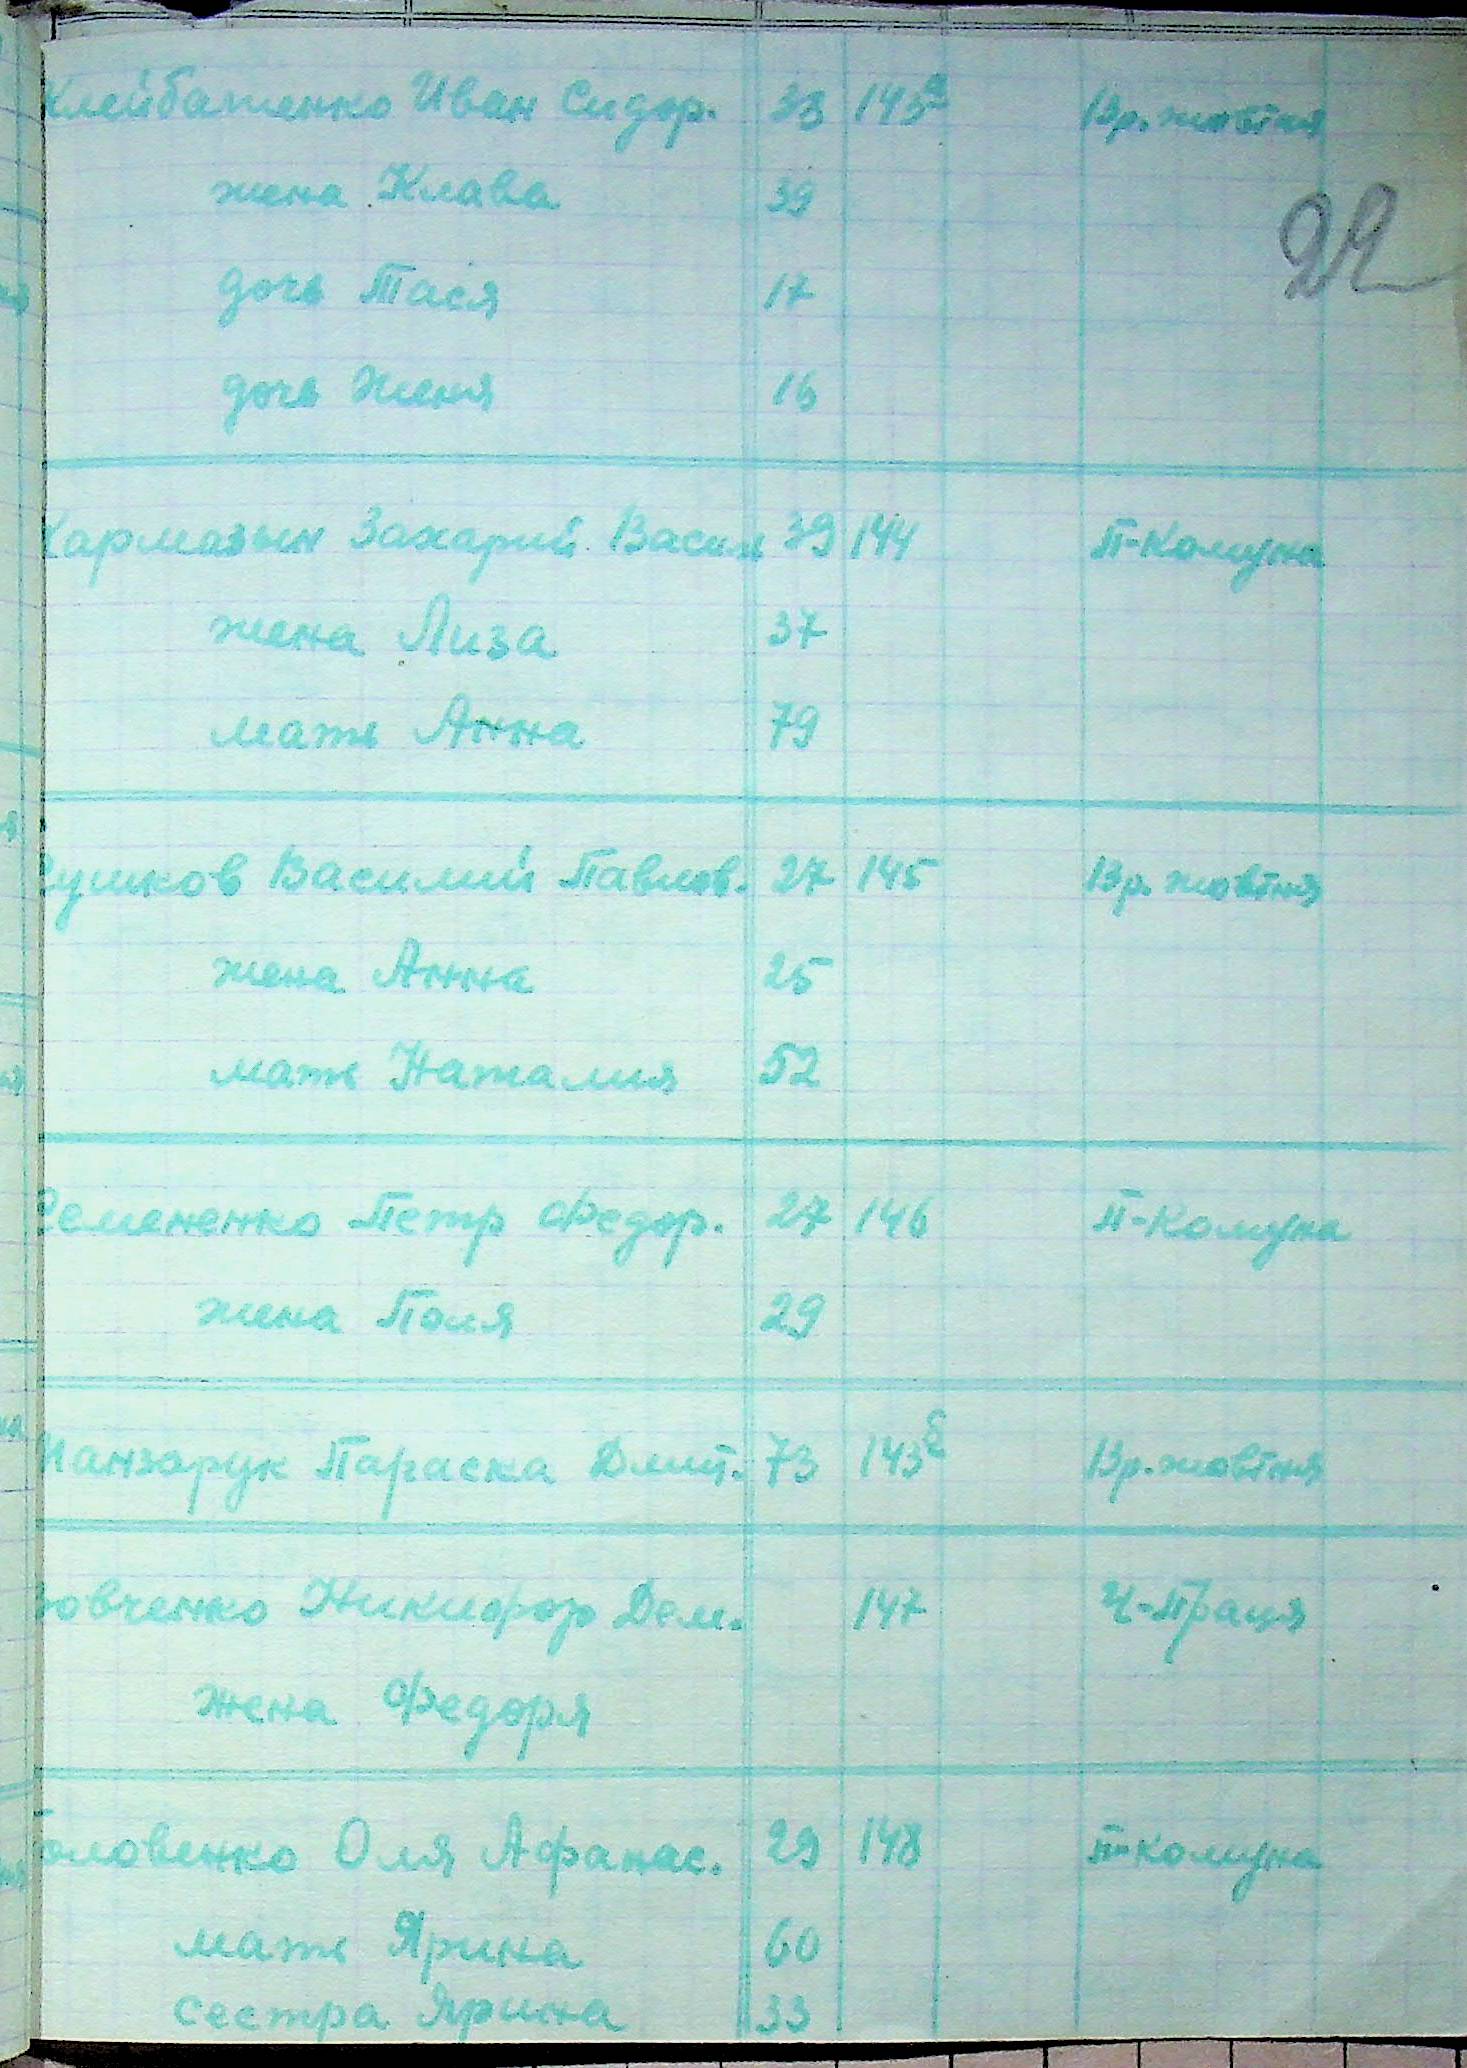 Клейбатенко Иван Сидор. 33 143а 13р. жовтня
жена Клава 39
22
дочь Тася 17
дочь Женя 16
Кармазын Захарий Васил 39 144 П-Комуна
жена Лиза 37
мать Анна 79
Сушков Василий Павлов. 27 145 13р. жовтня
жена Анна 25
мать Наталия 52
Семененко Петр Федор. 27 146 П-Комуна
жена Поля 29
Параска Дмит. 73 143б 13р. жовтня
Никифор Дем. 147 Ч-Праця
жена Федоря
Головенко Оля Афанас. 29 148 П-Комуна
мать Ярина 60
сестра Ярина 33